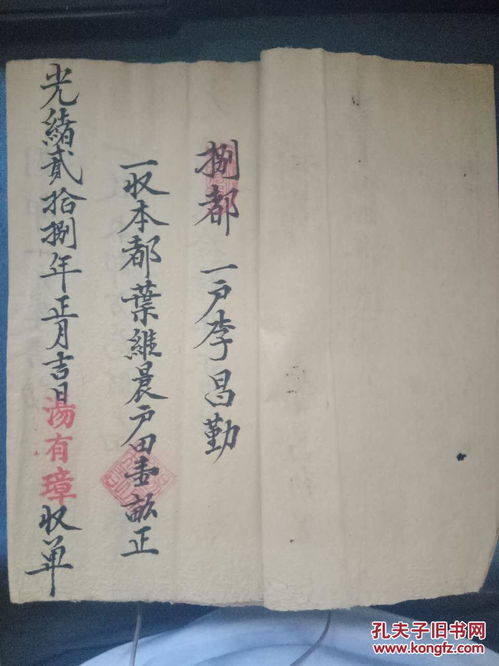 捌都 一户李昌勤
一收本都葉維晨户田壹畝正
光緒貳拾捌年正月吉日湯有璋收单
孔夫子旧书网
www.kongfz.com